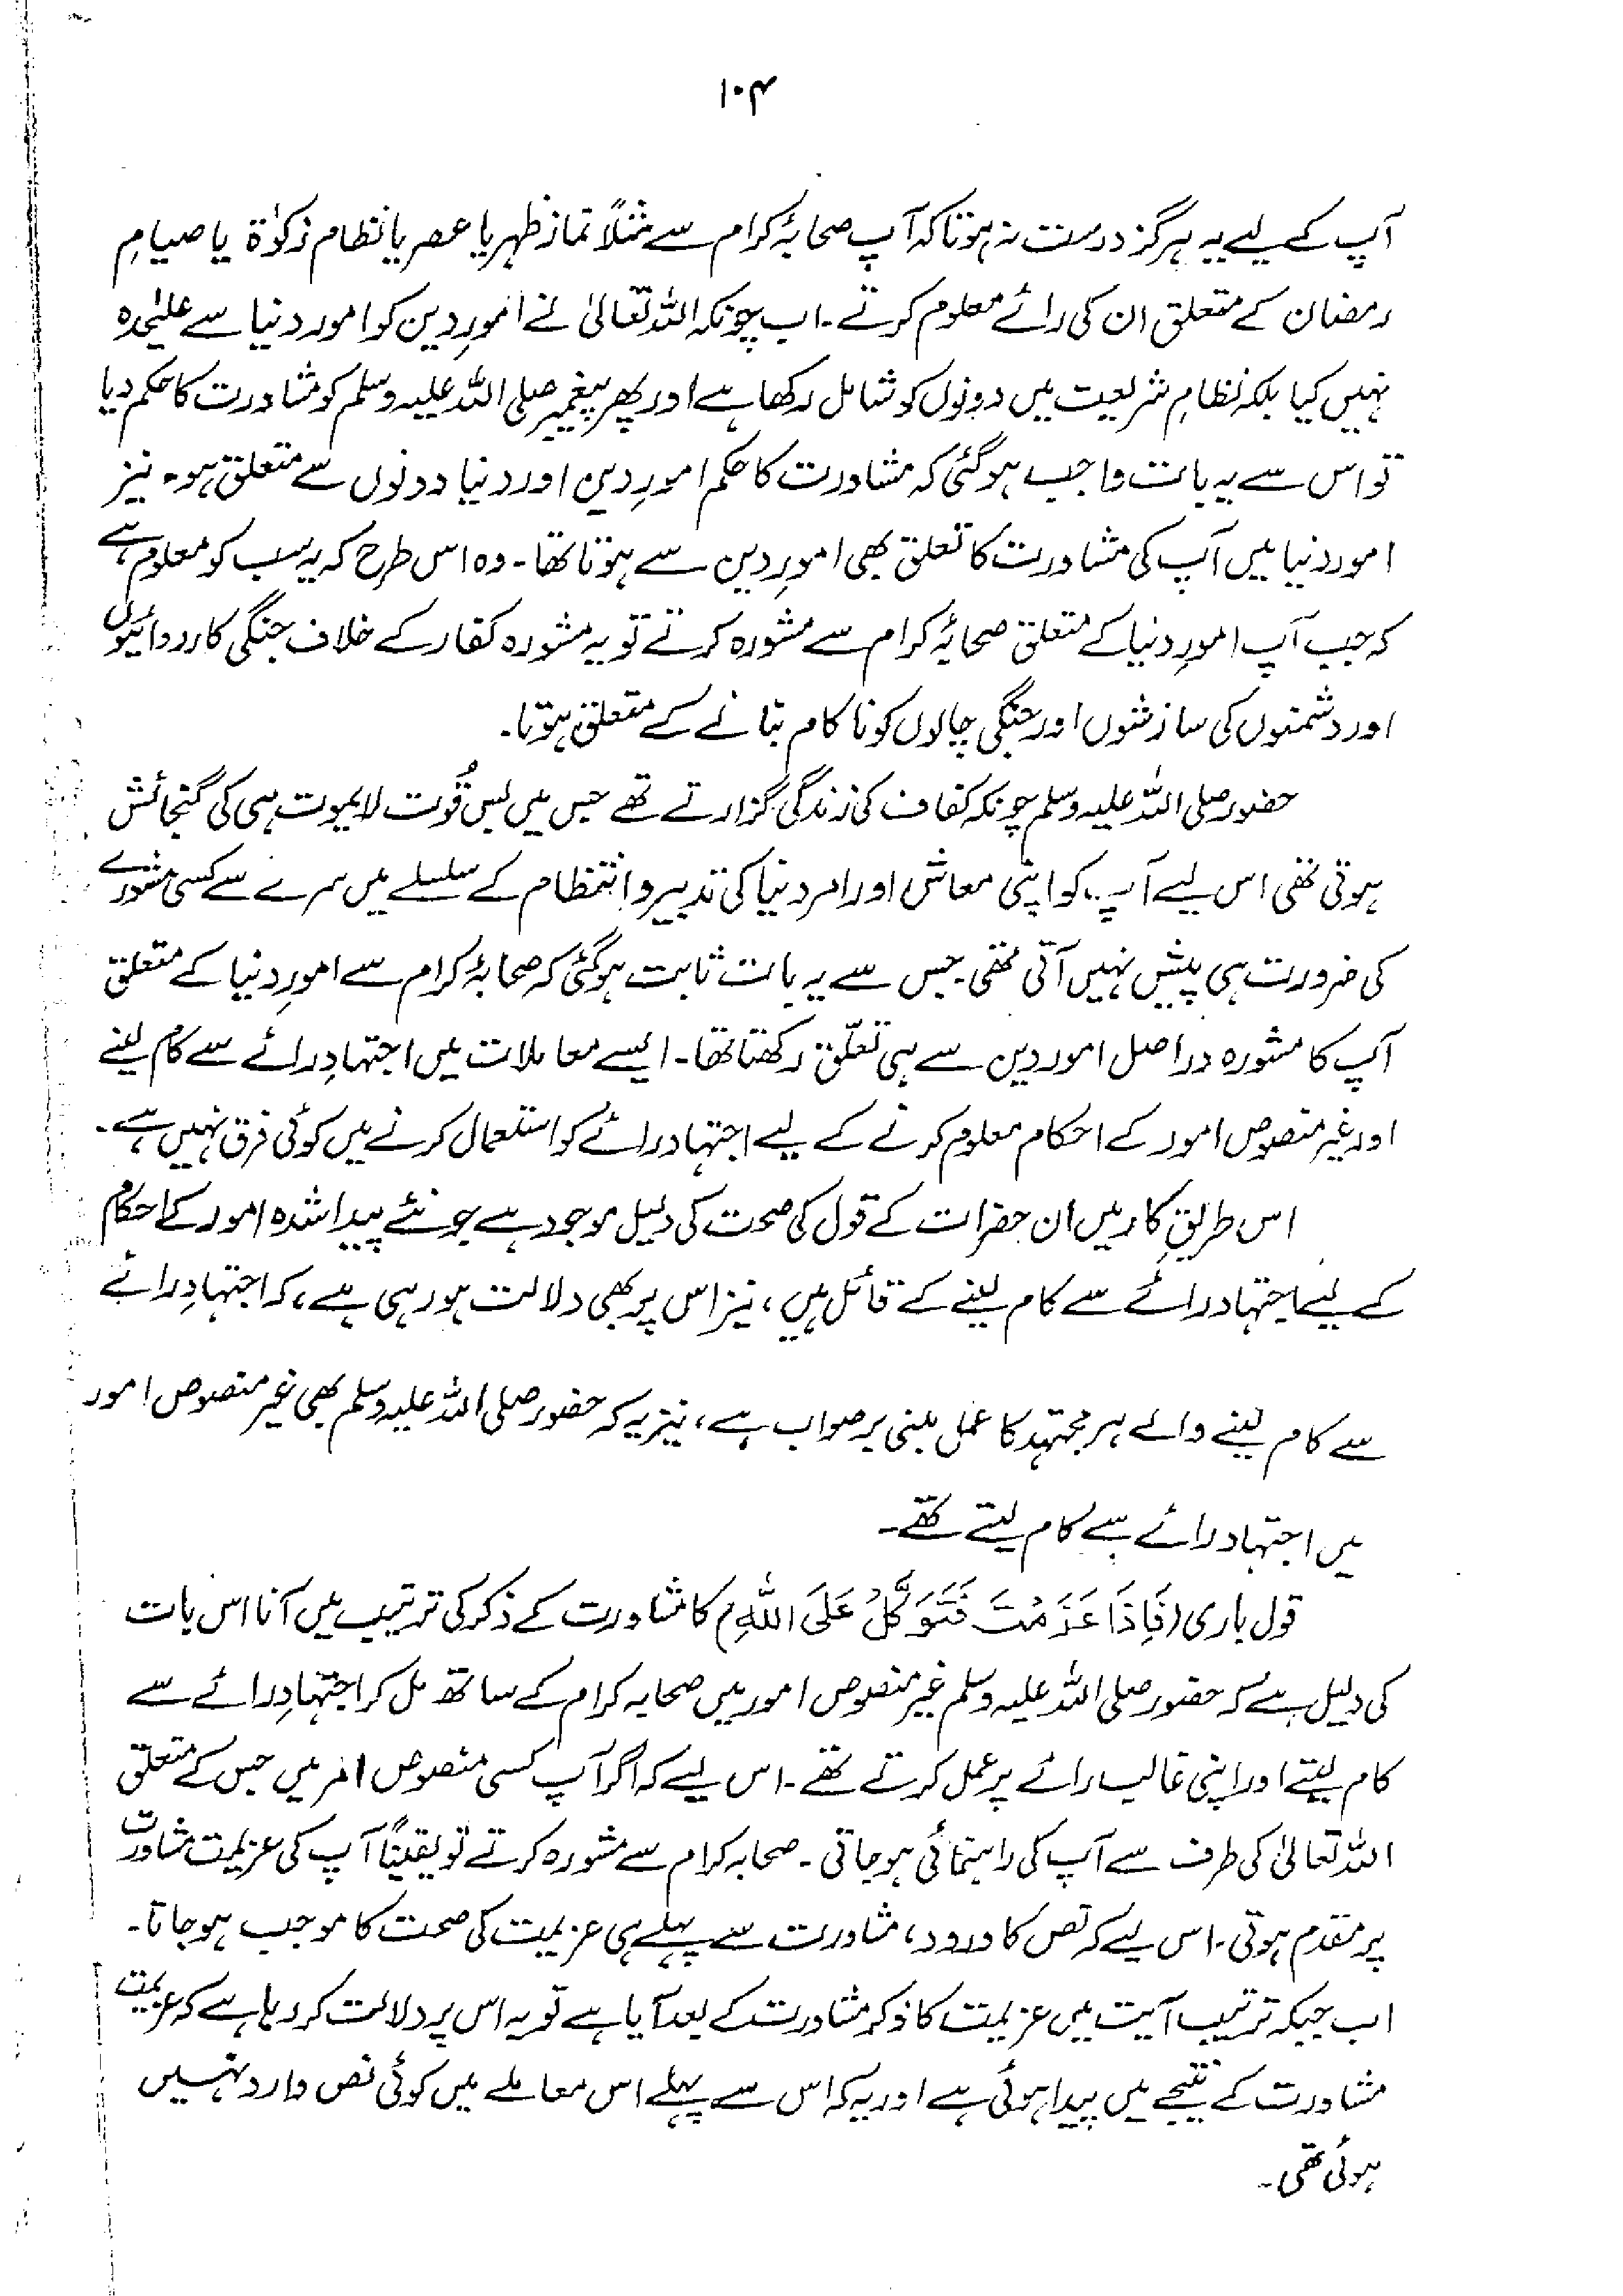 ۱۰۴
آپ کے لیے یہ ہرگز درست نہ ہوتا کہ آپ صحابۂ کرام سے مثلاً نماز ظہر یا عصر یا نظام زکوٰۃ یا صیامِ
رمضان کے متعلق ان کی رائے معلوم کرتے۔ اب چونکہ اللہ تعالیٰ نے امورِ دین کو امور دنیا سے علیٰحدہ
نہیں کیا بلکہ نظامِ شریعت میں دونوں کو شامل رکھا ہے اور پھر پیغمبر صلی اللہ علیہ وسلم کو مشاورت کا حکم دیا
تو اس سے یہ بات واجب ہوگئی کہ مشاورت کا حکم امورِ دین اور دنیا دونوں سے متعلق ہو۔ نیز
امور دنیا میں آپ کی مشاورت کا تعلق بھی امورِ دین سے ہوتا تھا۔ وہ اس طرح کہ یہ سب کو معلوم ہے
کہ جب آپ امورِ دنیا کے متعلق صحابۂ کرام سے مشورہ کرتے تو یہ مشورہ کفار کے خلاف جنگی کارروائیوں
اور دشمنوں کی سازشوں اور جنگی چالوں کو ناکام بنانے کے متعلق ہوتا۔
حضور صلی اللہ علیہ وسلم چونکہ کفاف کی زندگی گزارتے تھے جس میں بس قُوت لایموت ہی کی گنجائش
ہوتی تھی اس لیے آپ کو اپنی معاش اور امر دنیا کی تدبیر و انتظام کے سلسلے میں سرے سے کسی مشورے
کی ضرورت ہی پیش نہیں آتی تھی۔ جس سے یہ بات ثابت ہوگئی کہ صحابۂ کرام سے امورِ دنیا کے متعلق
آپ کا مشورہ دراصل امور دین سے ہی تعلّق رکھتا تھا۔ ایسے معاملات میں اجتہادِ رائے سے کام لینے
اور غیر منصوص امور کے احکام معلوم کرنے کے لیے اجتہاد رائے کو استعمال کرنے میں کوئی فرق نہیں ہے۔
اس طریقِ کار میں ان حضرات کے قول کی صحت کی دلیل موجود ہے جو نئے پیدا شدہ امور کے احکام
کے لیے اجتہاد رائے سے کام لینے کے قائل ہیں، نیز اس پر بھی دلالت ہو رہی ہے، کہ اجتہادِ رائے
سے کام لینے والے ہر مجتہد کا عمل مبنی بر صواب ہے، نیز یہ کہ حضور صلی اللہ علیہ وسلم بھی غیر منصوص امور
میں اجتہاد رائے سے کام لیتے تھے۔
قول باری (فَاِذَا عَزَمْتَ فَتَوَكَّلْ عَلَى اللّٰهِ) کا مشاورت کے ذکر کی ترتیب میں آنا اس بات
کی دلیل ہے کہ حضور صلی اللہ علیہ وسلم غیر منصوص امور میں صحابہ کرام کے ساتھ مل کر اجتہادِ رائے سے
کام لیتے اور اپنی غالب رائے پر عمل کرتے تھے۔ اس لیے کہ اگر آپ کسی منصوص امر میں جس کے متعلق
اللہ تعالیٰ کی طرف سے آپ کی راہنمائی ہو جاتی۔ صحابہ کرام سے مشورہ کرتے تو یقیناً آپ کی عزیمت مشاورت
پر مقدم ہوتی۔ اس لیے کہ نص کا ورود، مشاورت سے پہلے ہی عزیمت کی صحت کا موجب ہو جاتا۔
اب جبکہ ترتیب آیت میں عزیمت کا ذکر مشاورت کے بعد آیا ہے تو یہ اس پر دلالت کر رہا ہے کہ عزیمت
مشاورت کے نتیجے میں پیدا ہوئی ہے اور یہ کہ اس سے پہلے اس معاملے میں کوئی نص وارد نہیں
ہوئی تھی۔